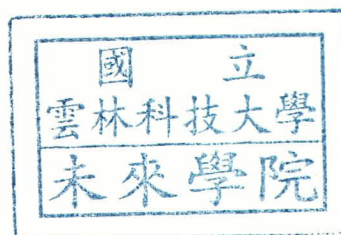 國立
雲林科技大學
未來學院